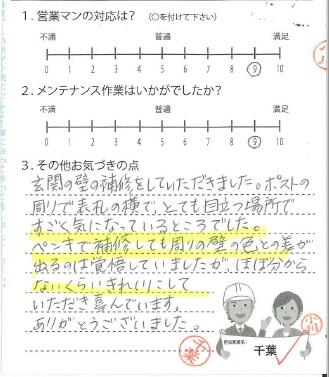 1. 営業マンの対応は？（○を付けて下さい）
不満 普通 満足
0 1 2 3 4 5 6 7 8 9 10
2. メンテナンス作業はいかがでしたか？
不満 普通 満足
0 1 2 3 4 5 6 7 8 9 10
3. その他お気づきの点
玄関の壁の補修をしていただきました。ポストの
周りで表札の横で、とても目立つ場所で
すごく気になっているところでした。
ペンキで補修しても周りの壁の色との差が
出るのは覚悟していましたが、ほぼ分から
ないくらいきれいにして
いただき喜んでいます。
ありがとうございました。
担当営業名:
千葉